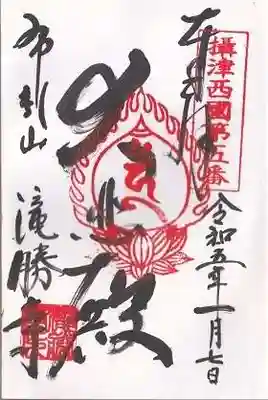 攝津西國第五番
奉拝
令和五年一月七日
大悲殿
布引山
滝勝寺